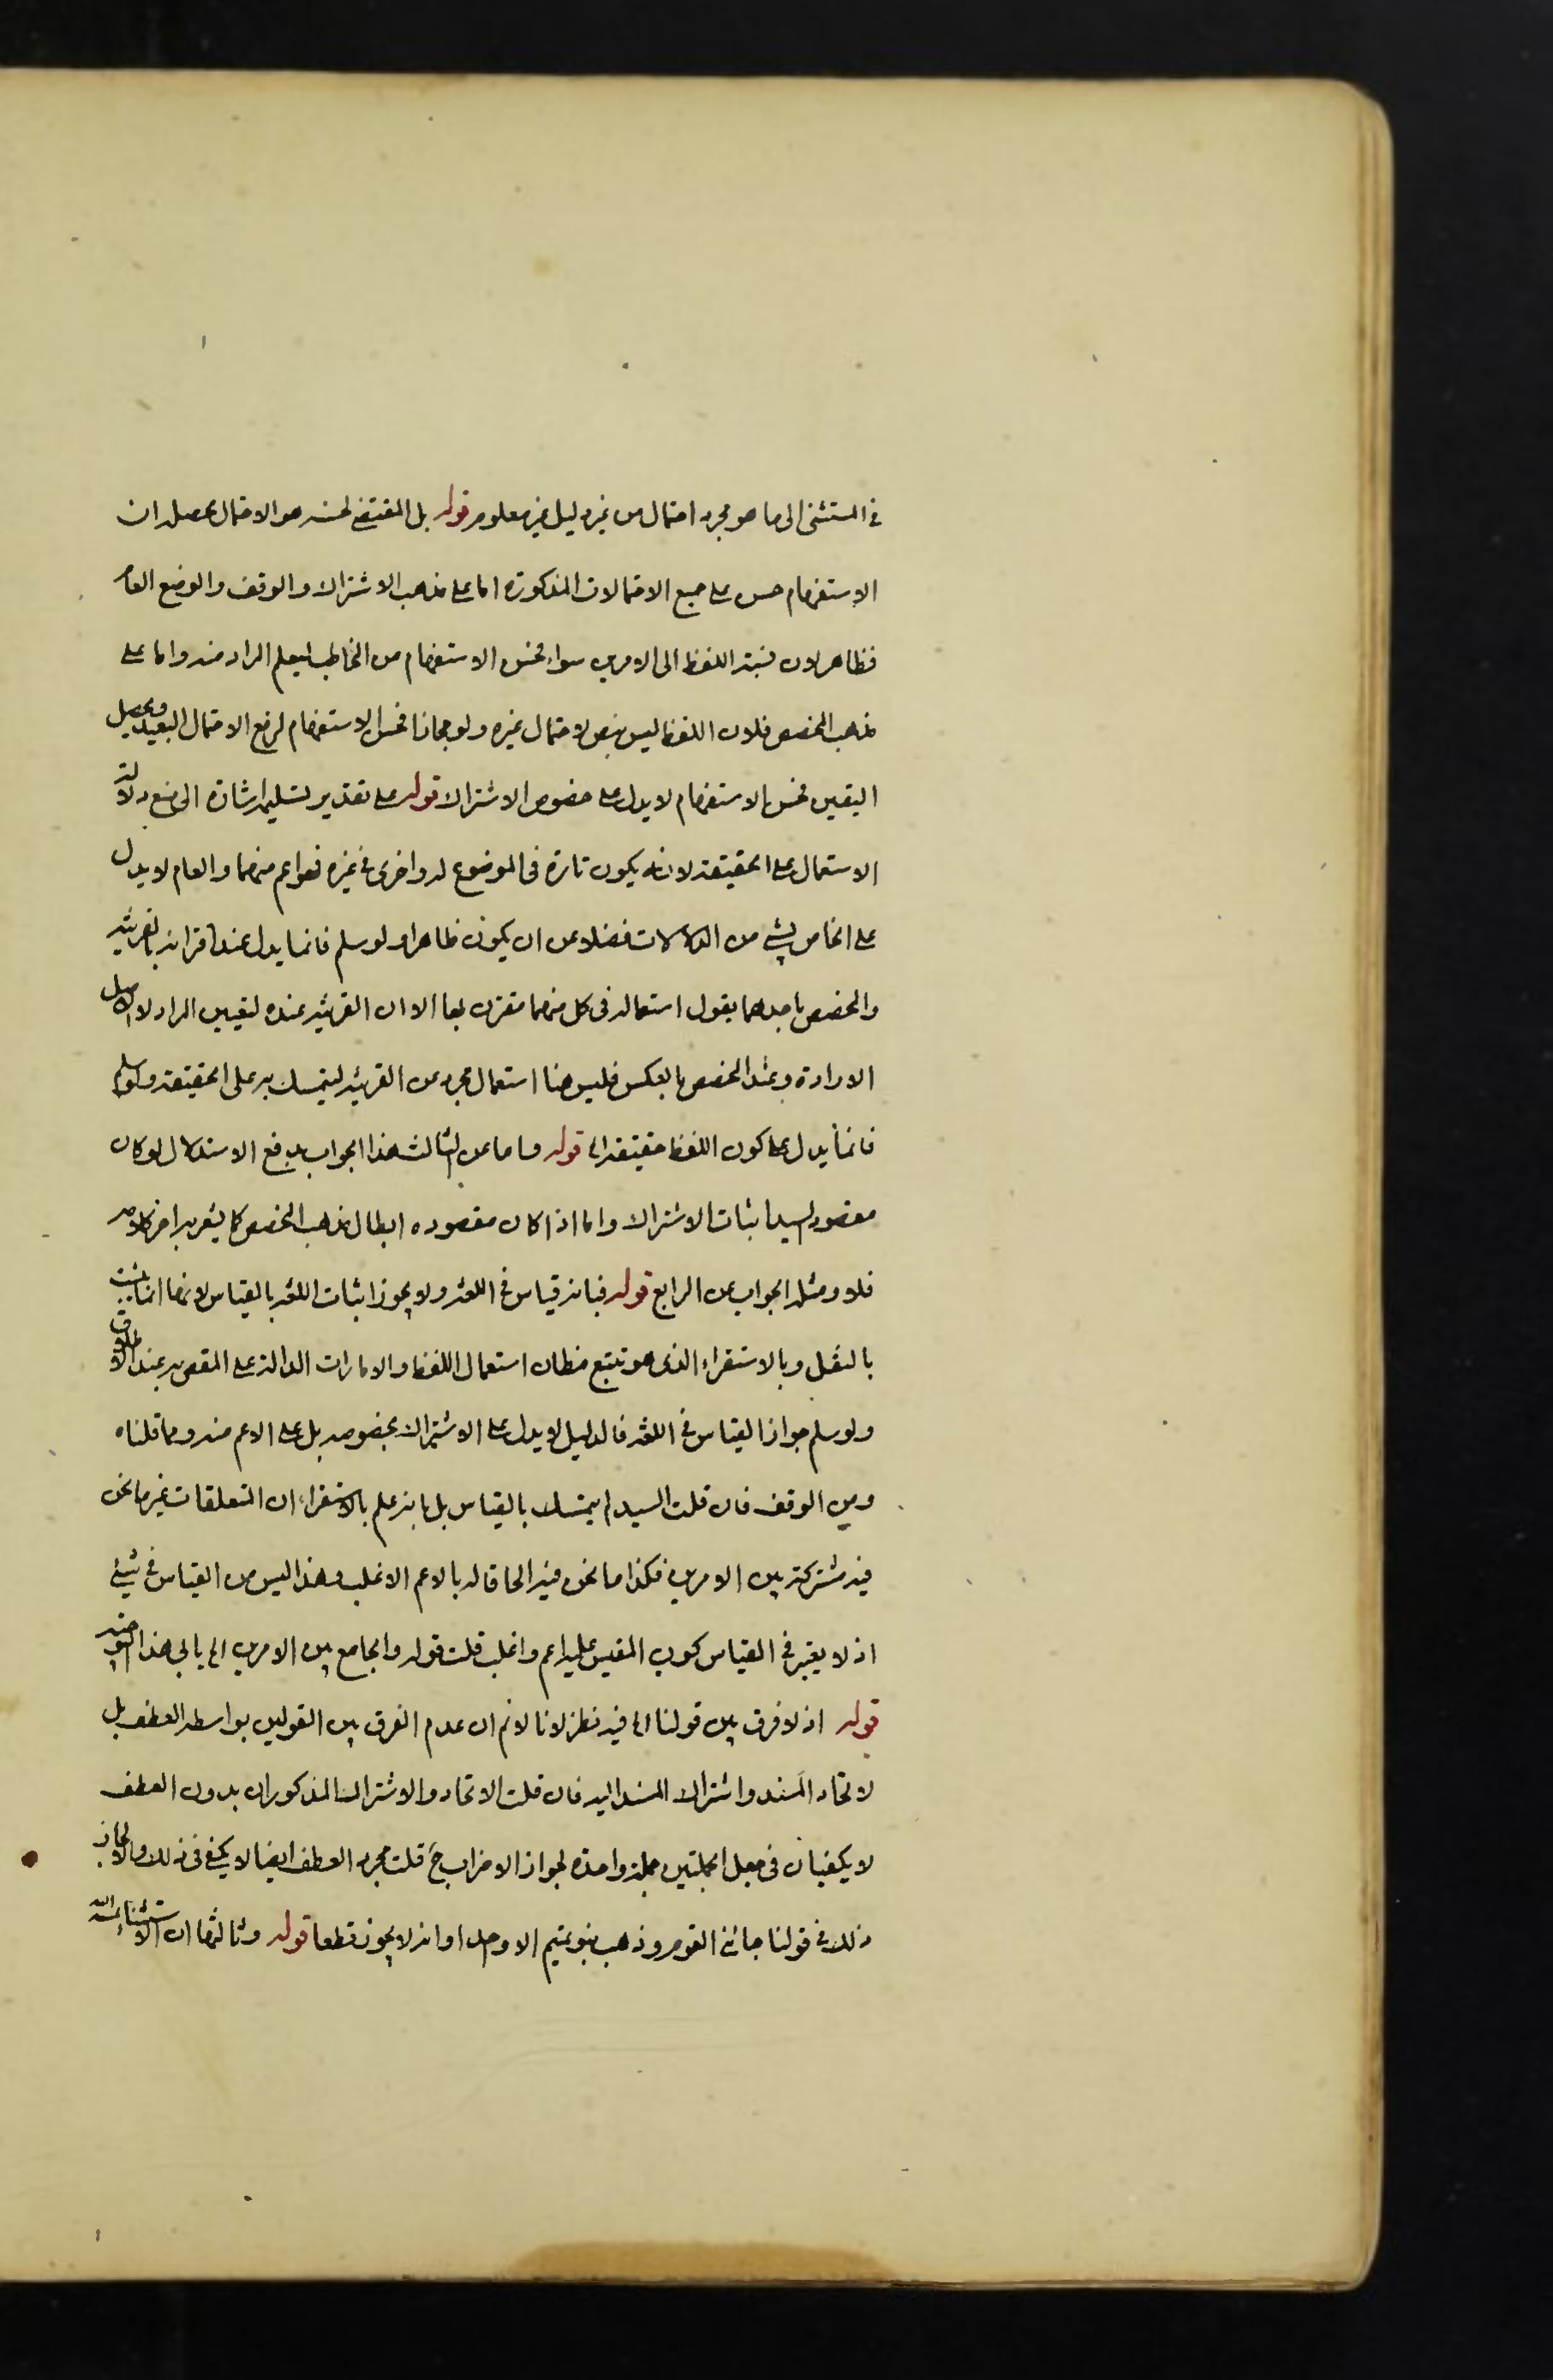 في المستثنى الى ما هو مجرد احتمال من غير دليل غير معلوم قوله بل المقتضى لحسنه هو الاحتمال محصله ان
الاستفهام حسن على جميع الاحتمالات المذكورة اما على مذهب الاشتراك والوقف والوضع العام
فظاهر لان نسبة اللفظ الى الامرين سواء فحسن الاستفهام من المخاطب ليعلم المراد منه واما على
مذهب المخصص فلان اللفظ ليس بنص لاحتمال غيره ولو مجازا فحسن الاستفهام لرفع الاحتمال البعيد وتحصيل
اليقين فحسن الاستفهام لا يدل على خصوص الاشتراك قوله على تقدير تسليمه اشارة الى منع دلالة
الاستعمال على الحقيقة لانه يكون تارة في الموضوع له واخرى في غيره فهو اعم منهما والعام لا يدل
على الخاص بشيء من الدلالات فضلا عن ان يكون ظاهرا ولو سلم فانما يدل عند اقترانه بالقرينة
والمخصص باحدهما يقول استعماله في كل منهما مقترن بها الا ان القرينة عنده لتعيين المراد لا لاصل
الارادة وعند المخصص بالعكس فليس هنا استعمال مجرد عن القرينة ليتمسك به على الحقيقة ولو سلم
فانما يدل على كون اللفظ حقيقة الخ قوله واما عن الثالث هذا الجواب يدفع الاستدلال لو كان
مقصود السيد اثبات الاشتراك واما اذا كان مقصوده ابطال مذهب المخصص كما يشعر به اخر كلامه
فلا ومثله الجواب عن الرابع قوله فبانه قياس في اللغة ولا يجوز اثبات اللغة بالقياس لانها انما تثبت
بالنقل وبالاستقراء الذي هو تتبع مظان استعمال اللفظ والامارات الدالة على المقصد به عند الاطلاق
ولو سلم جواز القياس في اللغة فالدليل لا يدل على الاشتراك بخصوصه بل على الاعم منه ومما قلناه
ومن الوقف فان قلت السيد لم يتمسك بالقياس بل بانه علم بالاستقراء ان المتعلقات غير ما نحن
فيه مشتركة بين الامرين فكذا ما نحن فيه الحاقا له بالاعم الاغلب وهذا ليس من القياس في شيء
اذ لا يعتبر في القياس كون المقيس عليه اعم واغلب قلت قوله والجامع بين الامرين الخ يابى هذا التوجيه
قوله اذ لا فرق بين قولنا الخ فيه نظر لانا لا نم ان عدم الفرق بين القولين بواسطة العطف بل
لاتحاد المسند واشتراك المسند اليه فان قلت الاتحاد والاشتراك المذكوران بدون العطف
لا يكفيان في جعل الجملتين جملة واحدة لجواز الاضراب ح قلت مجرد العطف ايضا لا يكفي في ذلك والا لجاز
ذلك في قولنا جائني القوم وذهب بنو تميم الا واحدا وانه لا يجوز قطعا قوله وثالثها ان الاستثناء بمشية الله